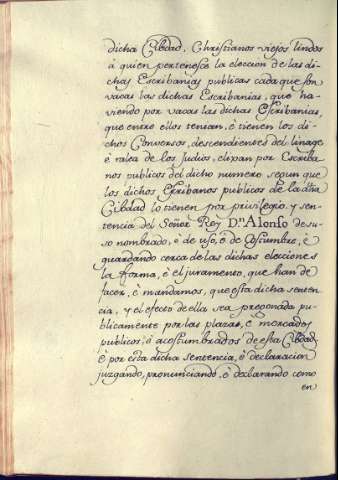 dicha Cibdad, Christianos viejos lindos
á quien pertenesce la eleccion de las di-
chas Escribanias publicas cada que son
vacas las dichas Escribanias, que ha-
viendo por vacas las dichas Escribanias,
que entre ellos tenian, é tienen los di-
chos Conversos, descendientes del linage
é ralea de los Judios, elixan por Escriba-
nos publicos del dicho numero segun que
los dichos Escribanos publicos de la dha
Cibdad lo tienen por privilegio y sen-
tencia del Señor Rey D.n Alonso de su-
so nombrado, é de uso, é de costumbre, é
guardando cerca de las dichas elecciones
la forma, é el juramento, que han de
facer, é mandamos, que esta dicha senten-
cia, y el efecto de ella sea pregonada pu-
blicamente por las plazas, é mercados
publicos, é acostumbrados de esta Cibdad,
é por esta dicha sentencia, é declaracion
juzgando, pronunciando, é declarando como
en